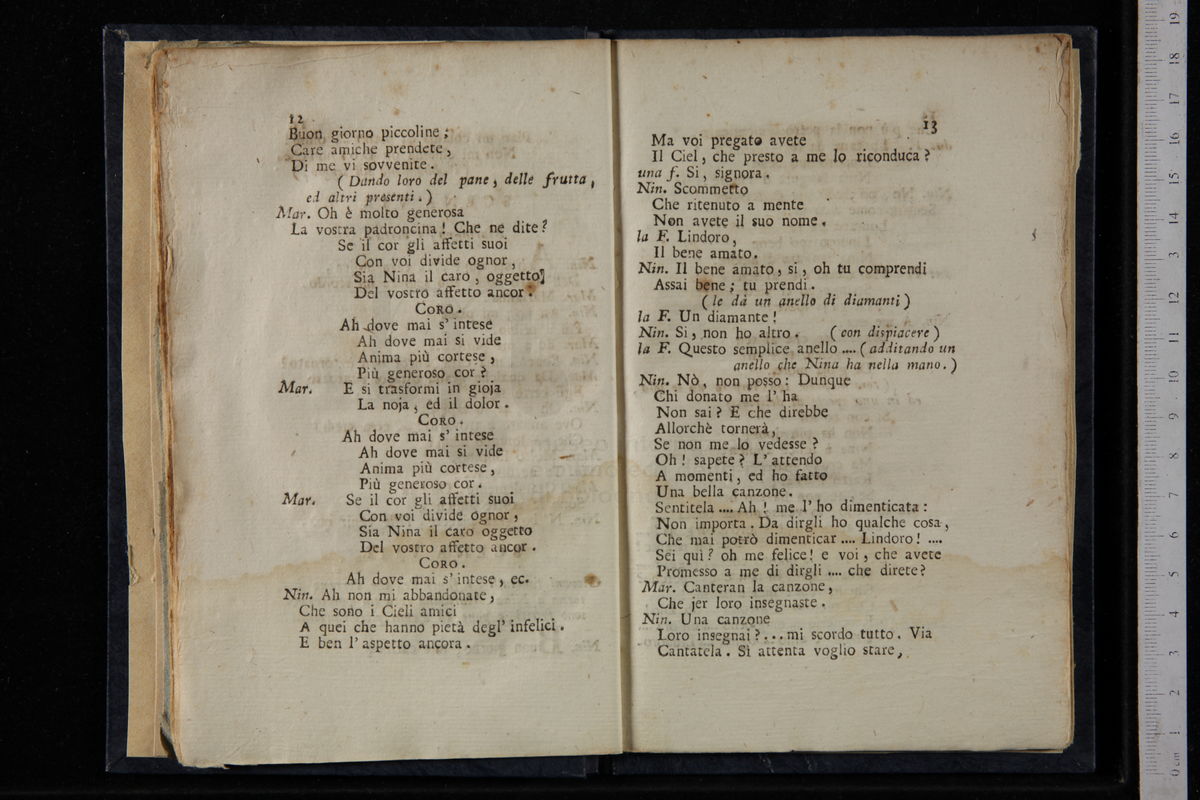 12
Buon giorno piccoline;
Care amiche prendete,
Di me vi sovvenite.
(Dando loro del pane, delle frutta,
ed altri presenti.)
Mar. Oh è molto generosa
La vostra padroncina! Che ne dite?
Se il cor gli affetti suoi
Con voi divide ognor,
Sia Nina il caro, oggetto
Del vostro affetto ancor.
CORO.
Ah dove mai s'intese
Ah dove mai si vide
Anima più cortese,
Più generoso cor?
Mar. E si trasformi in gioja
La noja, ed il dolor.
CORO.
Ah dove mai s'intese
Ah dove mai si vide
Anima più cortese,
Più generoso cor.
Mar. Se il cor gli affetti suoi
Con voi divide ognor,
Sia Nina il caro oggetto
Del vostro affetto ancor.
CORO.
Ah dove mai s'intese, ec.
Nin. Ah non mi abbandonate,
Che sono i Cieli amici
A quei che hanno pietà degl'infelici.
E ben l'aspetto ancora.
13
Ma voi pregato avete
Il Ciel, che presto a me lo riconduca?
una f. Si, signora.
Nin. Scommetto
Che ritenuto a mente
Non avete il suo nome.
la F. Lindoro,
Il bene amato.
Nin. Il bene amato, si, oh tu comprendi
Assai bene; tu prendi.
(le dà un anello di diamanti)
la F. Un diamante!
Nin. Si, non ho altro. (con dispiacere)
la F. Questo semplice anello .... (additando un
anello che Nina ha nella mano.)
Nin. Nò, non posso: Dunque
Chi donato me l'ha
Non sai? E che direbbe
Allorchè tornerà,
Se non me lo vedesse?
Oh! sapete? L'attendo
A momenti, ed ho fatto
Una bella canzone.
Sentitela .... Ah! me l'ho dimenticata:
Non importa. Da dirgli ho qualche cosa,
Che mai potrò dimenticar .... Lindoro! ....
Sei quì? oh me felice! e voi, che avete
Promesso a me di dirgli .... che direte?
Mar. Canteran la canzone,
Che jer loro insegnaste.
Nin. Una canzone
Loro insegnai?...mi scordo tutto. Via
Cantatela. Sì attenta voglio stare,
0 cm 1 2 3 4 5 6 7 8 9 10 11 12 13 14 15 16 17 18 19